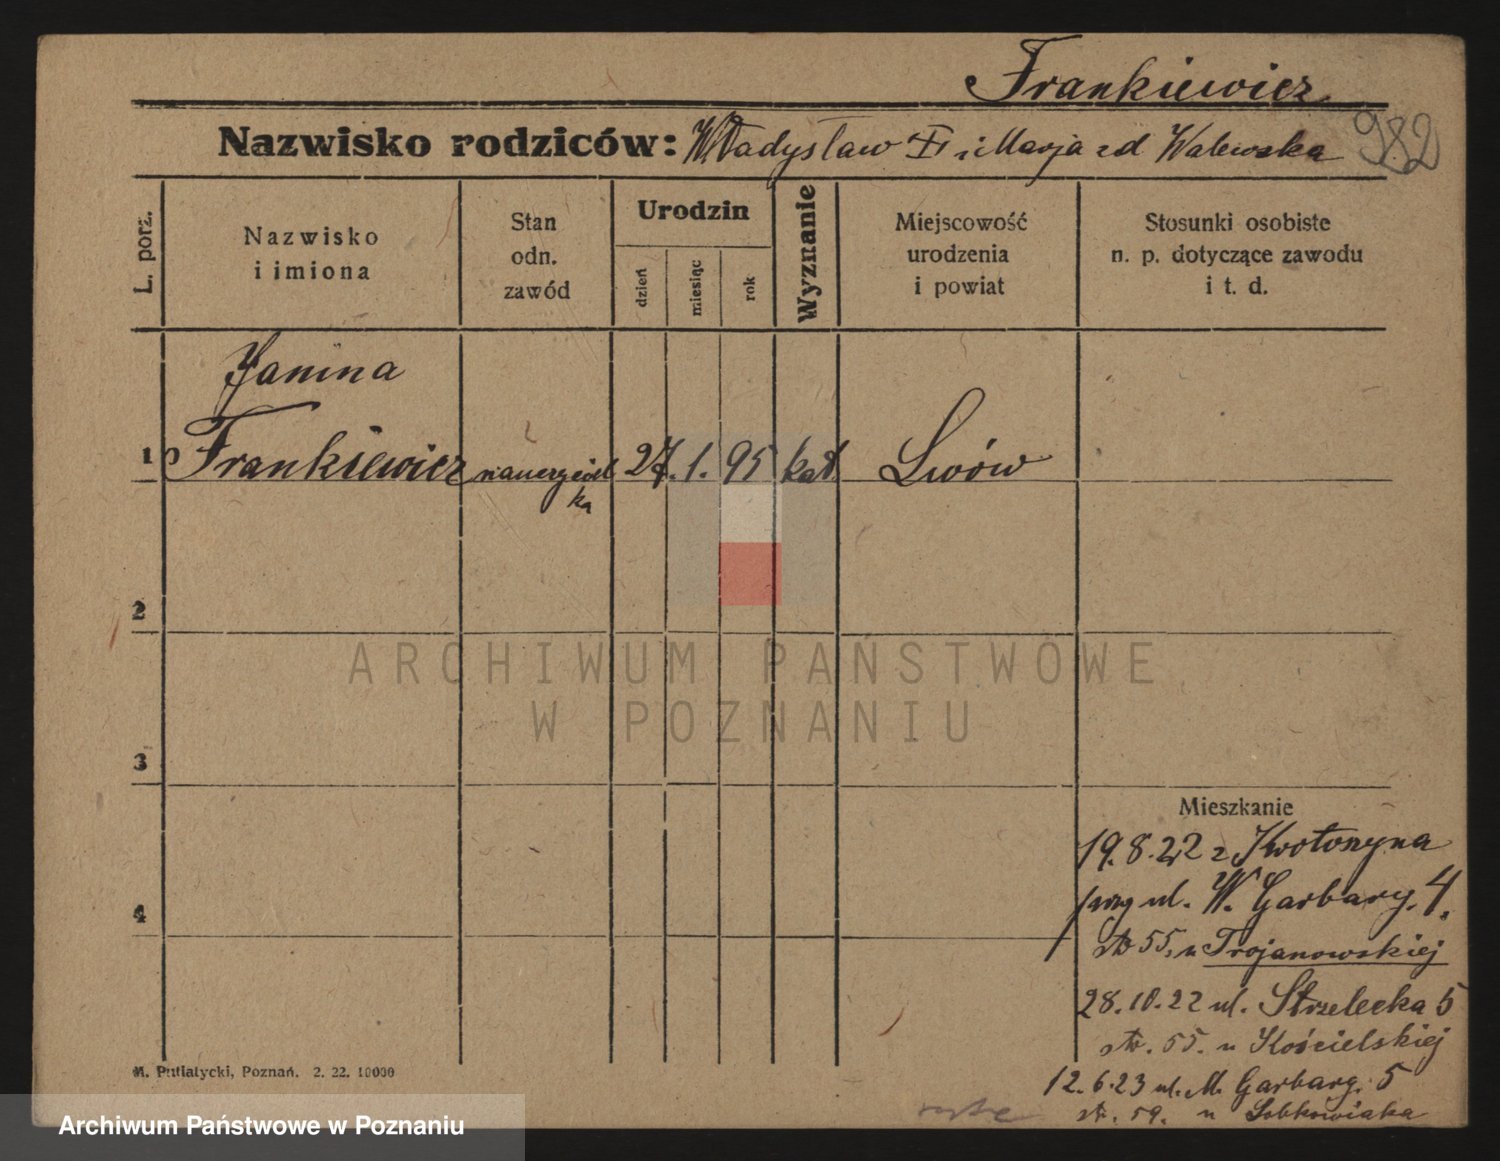 Frankiewicz
Nazwisko rodziców: Władysław i Marja zd Walewska 982
L. porz.
Nazwisko
i imiona
Stan
odn.
zawód
Urodzin
dzień
miesiąc
rok
Wyznanie
Miejscowość
urodzenia
i powiat
Stosunki osobiste
n. p. dotyczące zawodu
i t. d.
Janina
1 Frankiewicz nauczyciel 27. 1. 95 kat. Lwów
ka
2
3
4
ARCHIWUM PAŃSTWOWE
W POZNANIU
Mieszkanie
19.8.22 z Krotoszyna
przy ul. W. Garbary 4.
55. u Trojanowskiej
28.10.22 ul. Strzelecka 5
55. u Kościelskiej
12.6.23 ul. M. Garbary 5
59. u Sobkowiaka
M. Putiatycki, Poznań. 2. 22. 10000
Archiwum Państwowe w Poznaniu